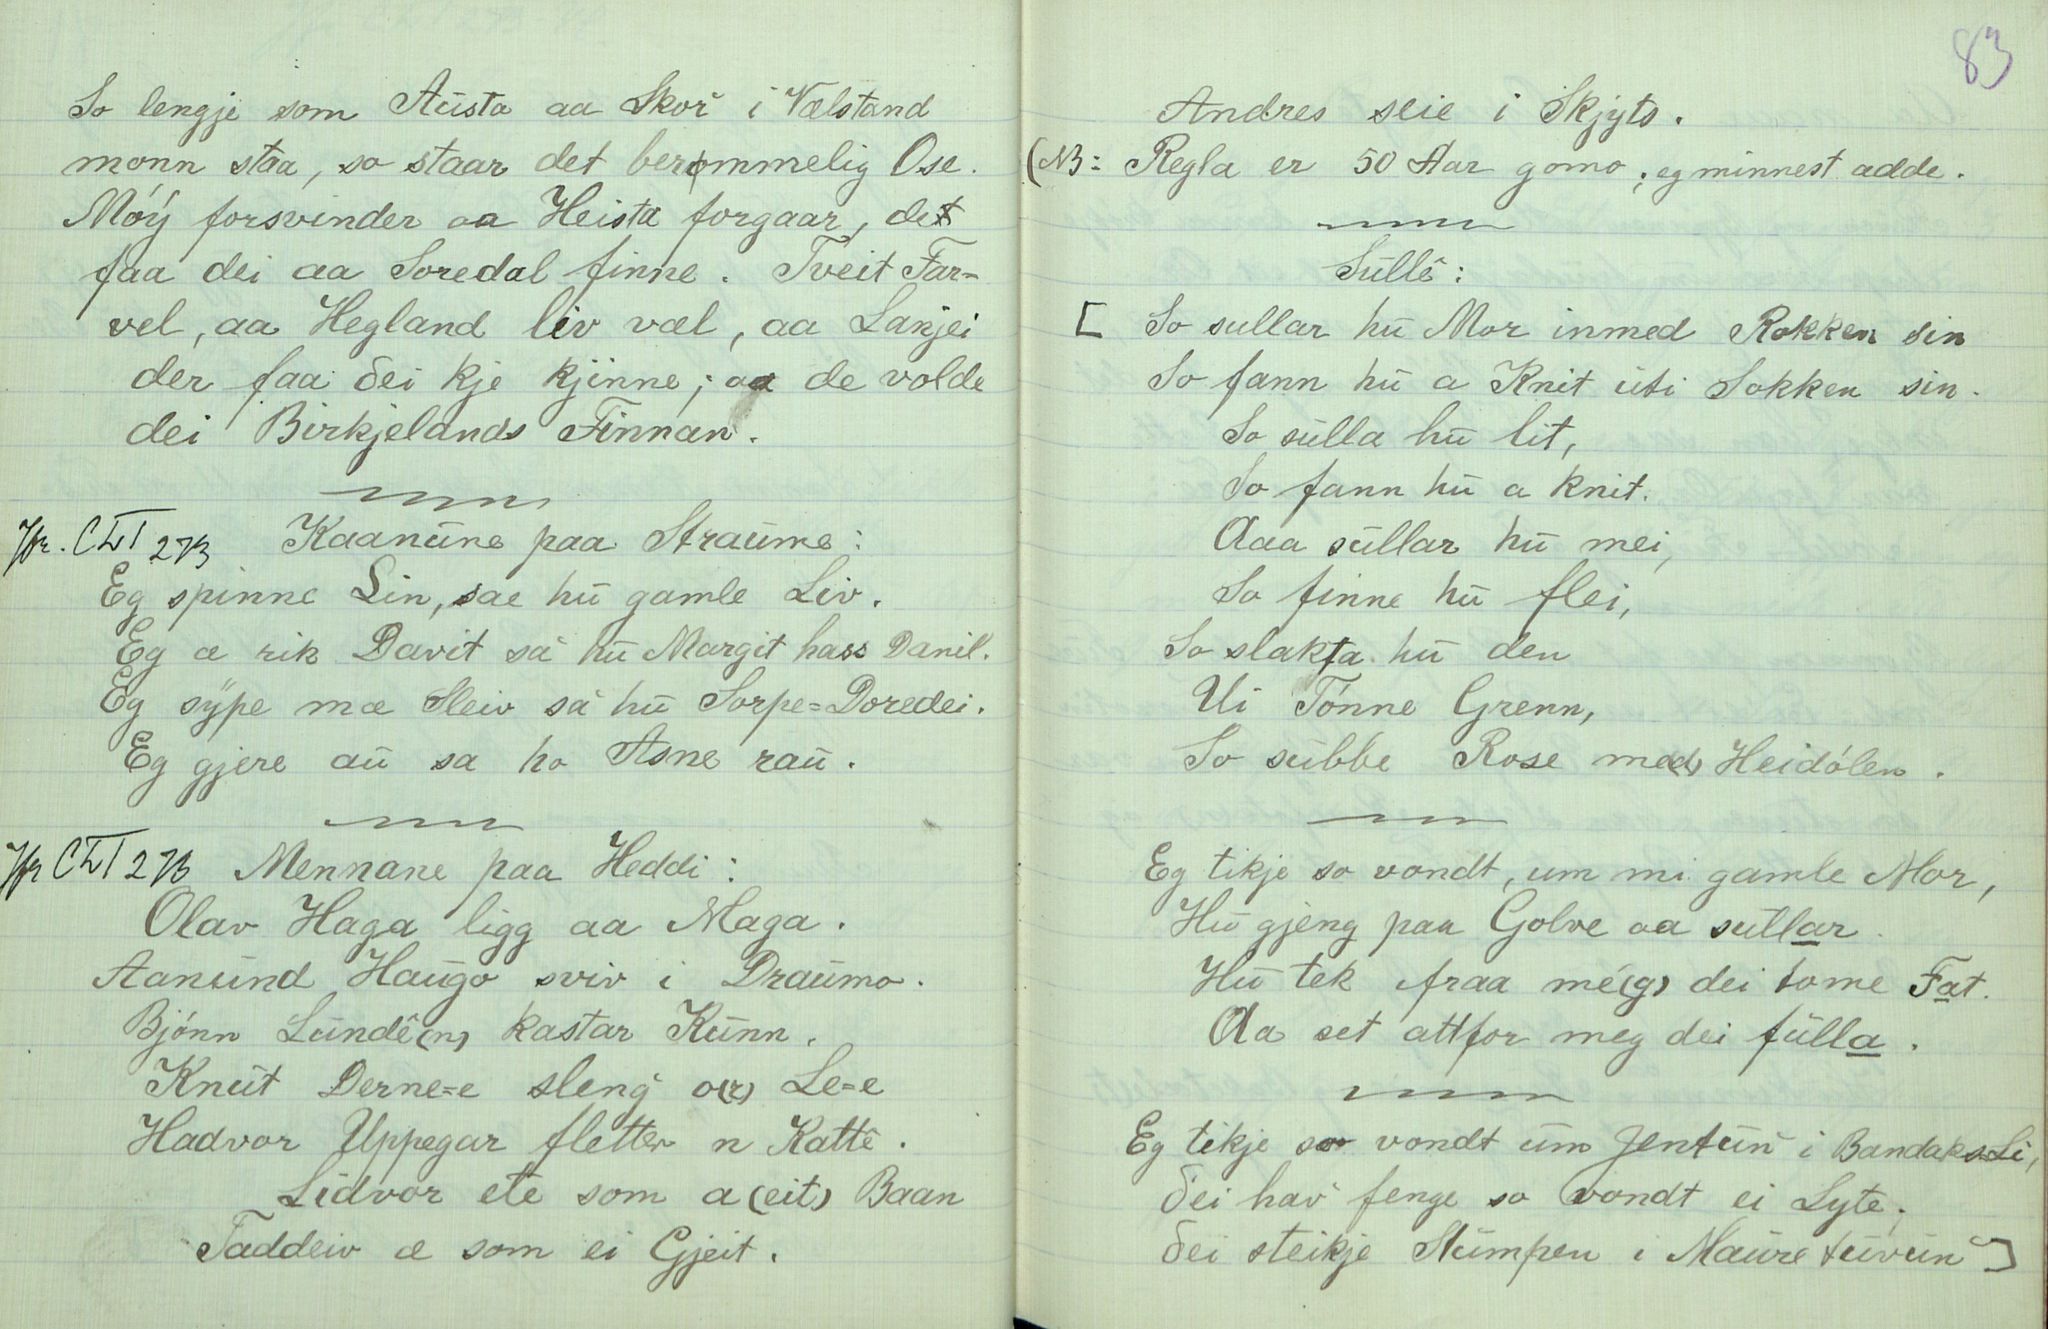 So lengje som Aùsta aa Skor i Vælstand
monn staa, so staar det berømmelig Ose.
Móÿ forsvinder aa Heista forgaar, det
faa dei aa Soredal finne. Tveit Far-
vel, aa Hegland liv væl, aa Lanjei
der faa dei kje kjinne; aa de volde
dei Birkjelands Finnan.
Jfr. CLI 273 Kaanūne paa Straūme:
Eg spinne Lin, sae hū gamle Liv.
Eg æ rik Davit sa hū Margit hass Danil.
Eg sÿpe mæ Sleiv sa hū Sorpe=Doredei.
Eg gjere aū sa ho Asne raū.
Jfr CLI 273 Mennane paa Heddi:
Olav Haga ligg aa Maga.
Aanūnd Haūgo sviv i Draūmo.
Bjónn Lūndê(n) kastar Kūnn.
Knūt Derne=e sleng o(r) Le=e
Hadvor Uppegar fletter n Kattê.
Lidvor ete som a (eit) Baan
Taddeiv æ som ei Gjeit.
83
Andres seie i Skjyts.
(NB: Regla er 50 Aar gomo; eg minnest adde.
Sūllê:
[ So sullar hū Mor inmed Rokken sin
So fann hū a Knit ūti Sokken sin.
So sūlla hū lit,
So fann hū a knit.
Aaa sūllar hū mei,
So finne hū flei,
So slakta hū den
Ui Tónne Grenn,
So sūbbe Rose me(d) Heidólen.
Eg tikje so vondt, um mi gamle Mor,
Hū gjeng paa Golve aa sullar.
Hū tek fraa mé(g) dei tome Fat.
Aa set attfor meg dei fūlla.
Eg tikje so vondt ūm Jentūn i Bandaks=Li,
dei hav fenge so vondt ei Lyte;
dei steikje Stūmpen i Maūretūvūn ]